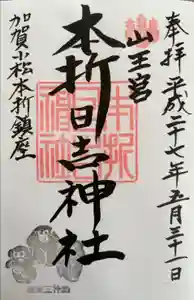 奉拝 平成二十七年五月三十一日
山王宮
本折日吉神社
加賀小松本折鎮座